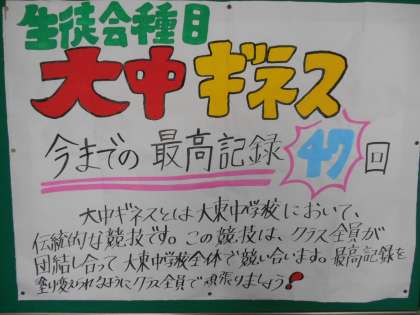 生徒会種目
大中ギネス
今までの最高記録 47回
大中ギネスとは大東中学校において、
伝統的な競技です。この競技は、クラス全員が
団結し合って大東中学校全体で競い合います。最高記録を
塗り変えられるようにクラス全員で頑張りましょう!